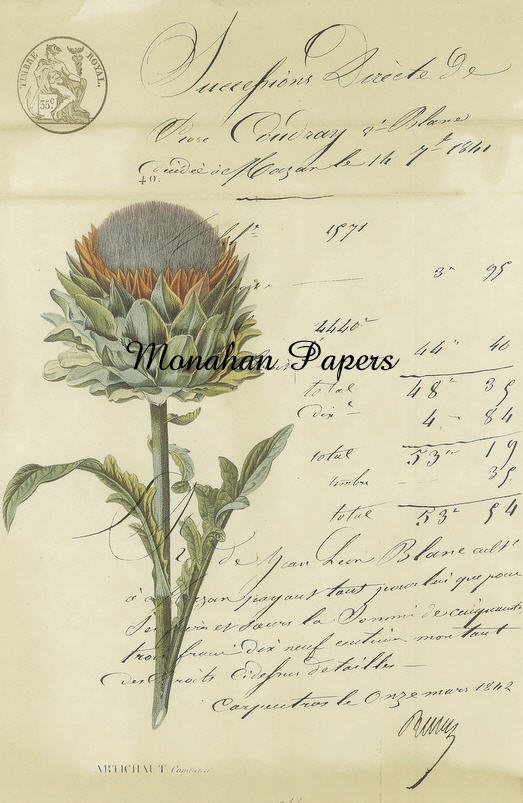 TIMBRE ROYAL
35 c
Successions Directe De
Rose Coudray v.e Blanc
décédée à Mazan le 14 7.e 1841
40.
1571
3" 95
4440"
44" 40
total 48" 35
dix.e 4 - 84
total 53" 19
timbre 35
total 53" 54
de Jean Léon Blanc cult.r
à Mazan payant tant pour lui que pour
Ses frères et sœurs la Somme de cinquante
trois francs dix neuf centimes montant
des Droits cidessus détaillés —
Carpentras le Onze mars 1842
Monahan Papers
ARTICHAUT Commun